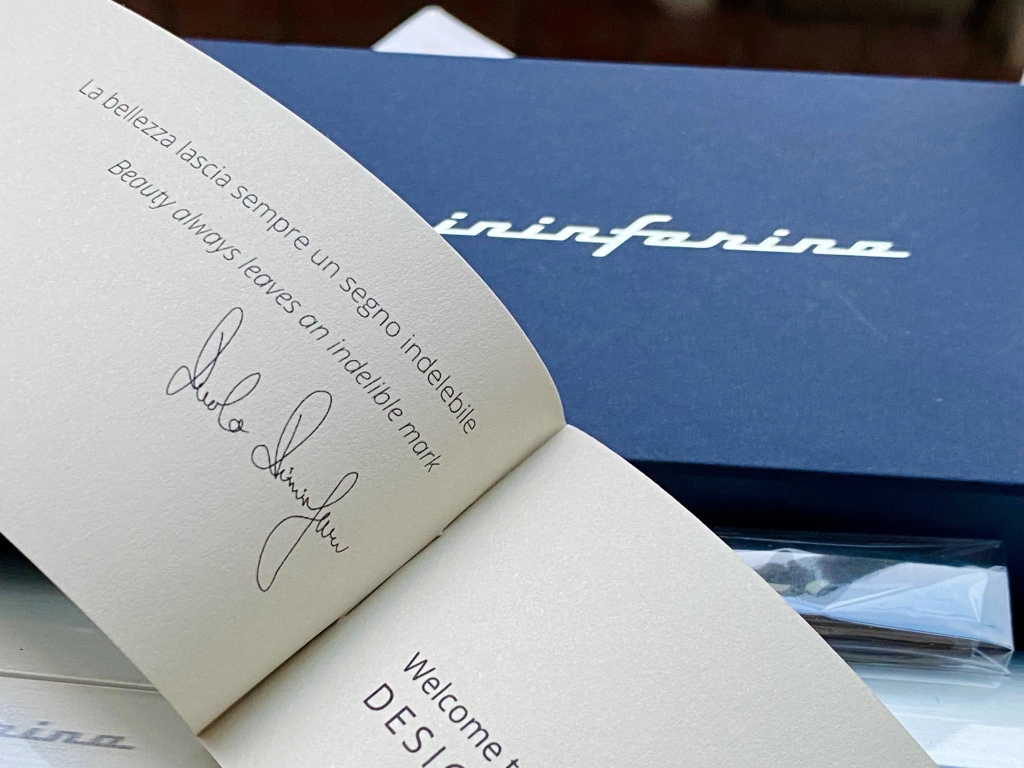 La bellezza lascia sempre un segno indelebile
Beauty always leaves an indelible mark
Paolo Pininfarina
Welcome t
DESIG
ininfarina
rina